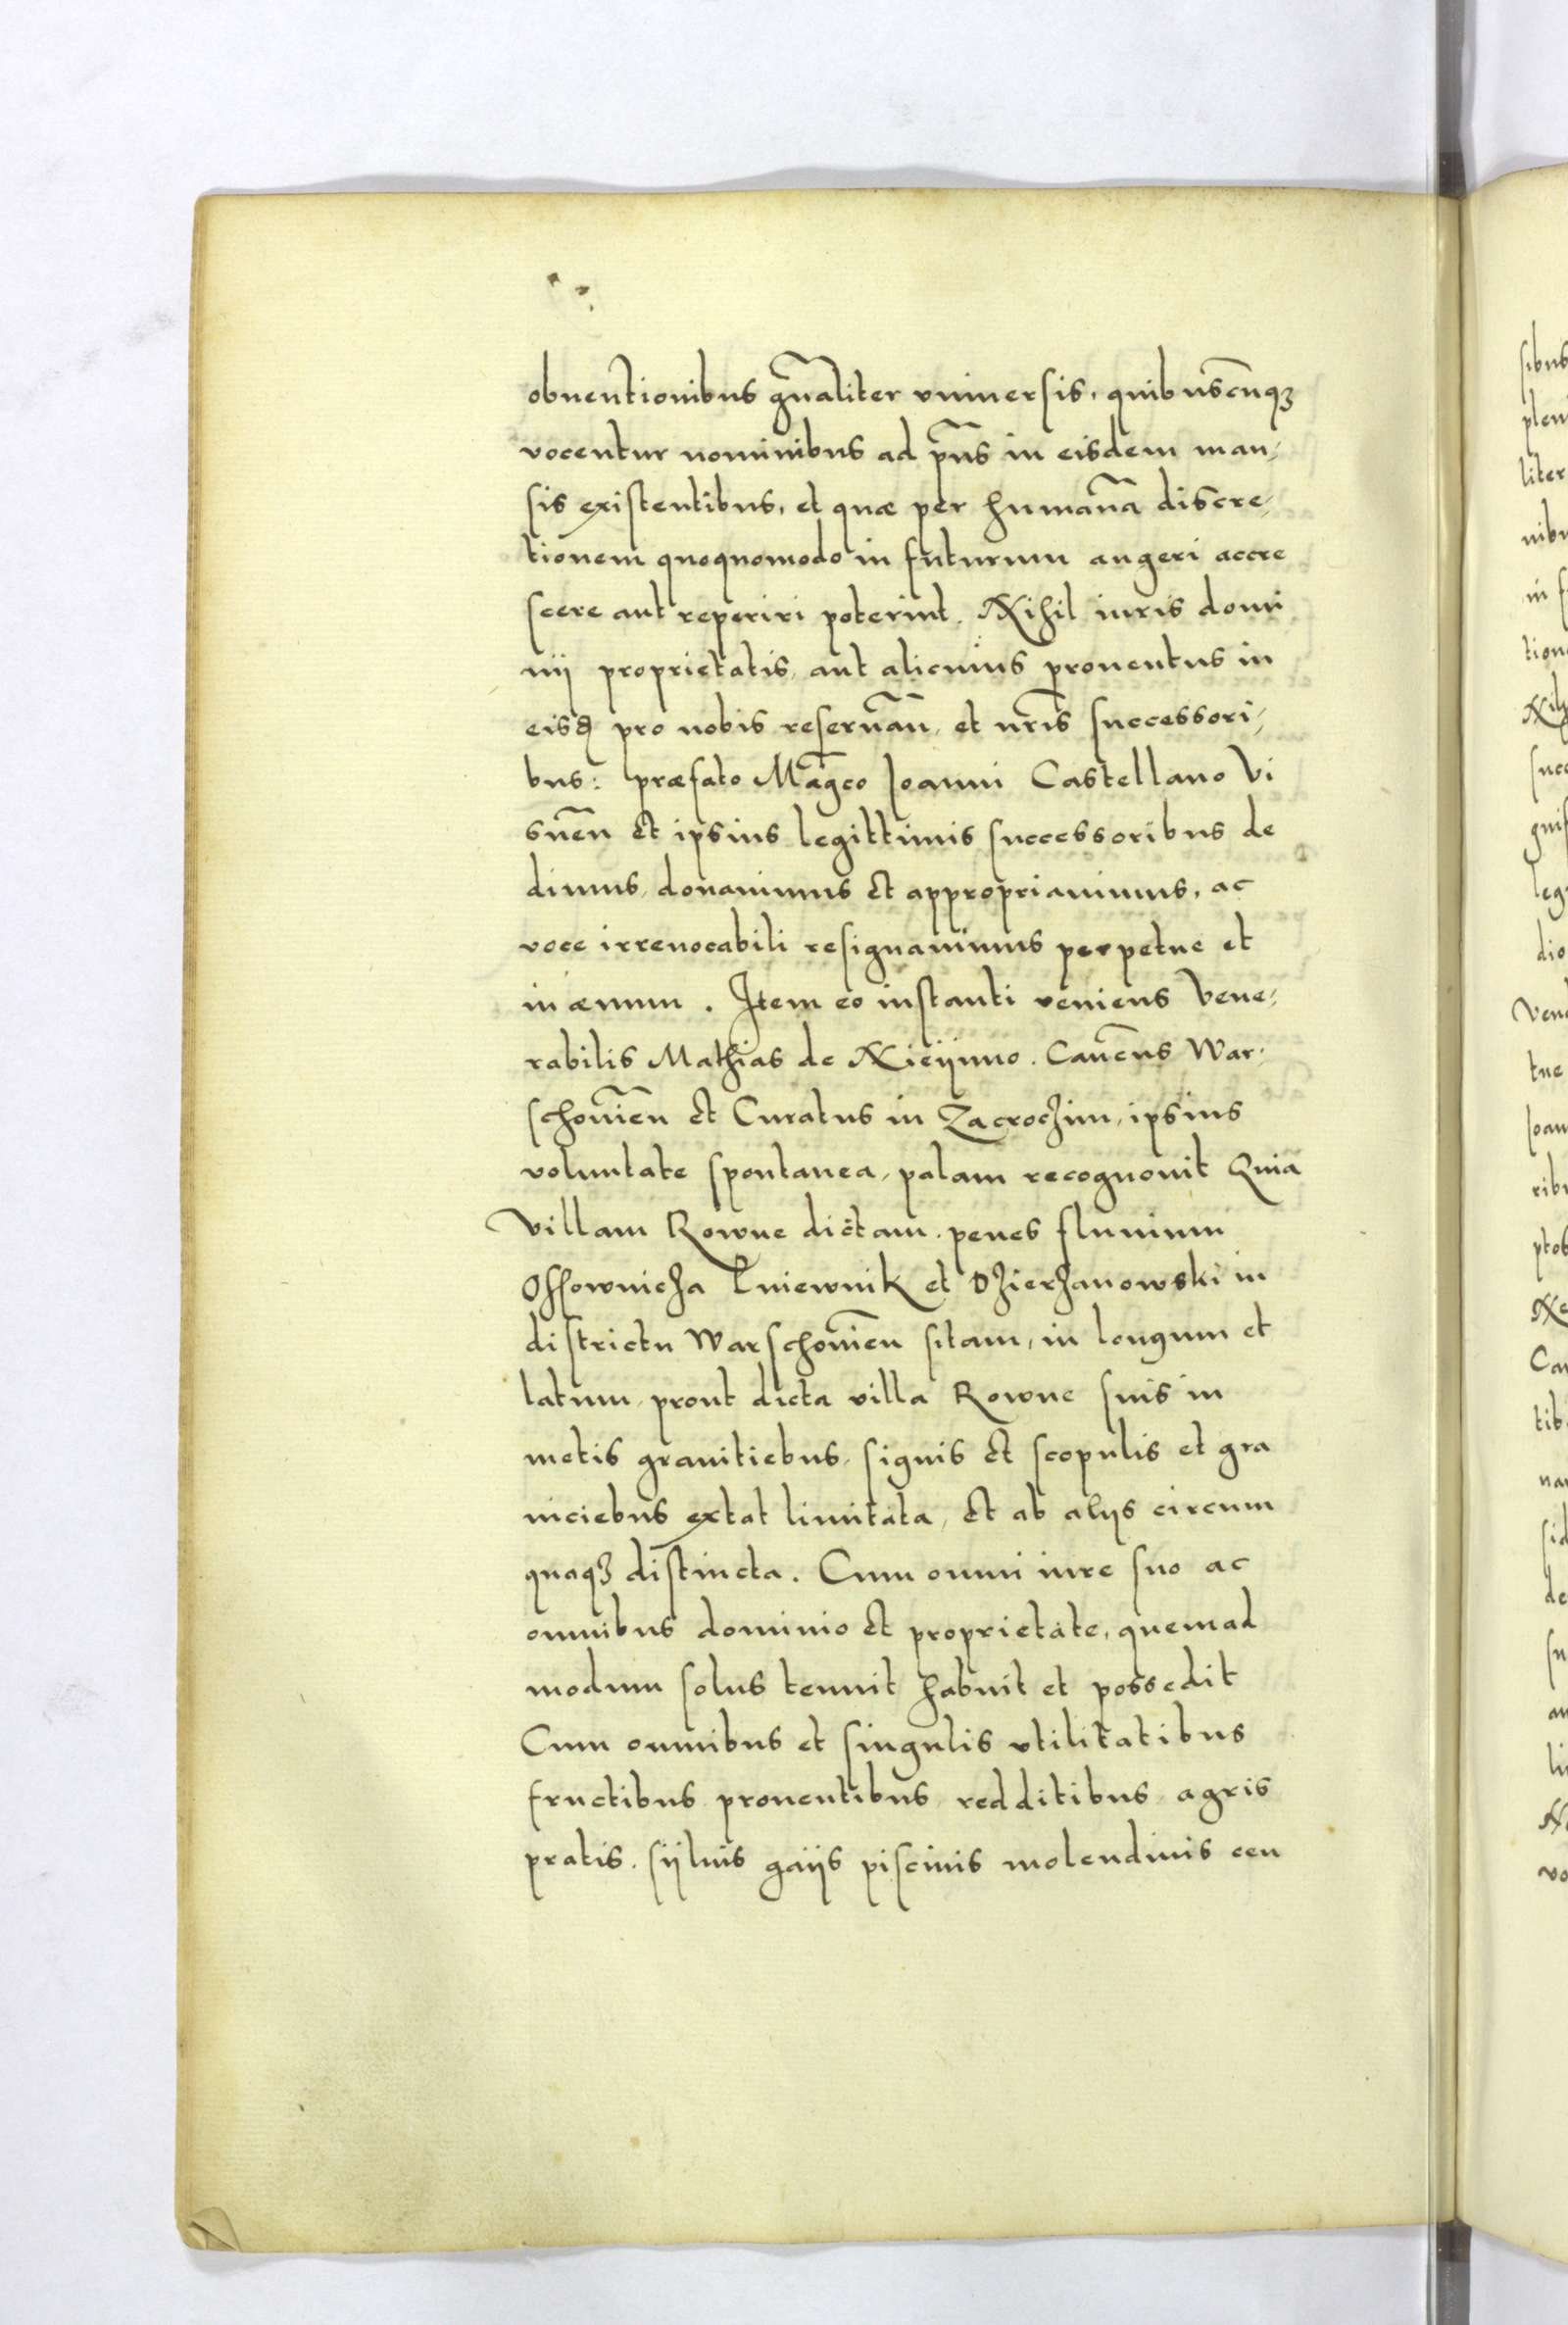 obuentionibus gñaliter vniuersis, quibuscũqꝫ
vocentur nominibus ad pñs in eisdem man-
sis existentibus, et quæ per humanã discre-
tionem quoquomodo in futurum augeri accre
scere aut reperiri poterint. Nihil iuris domi
nij proprietatis, aut alicuius prouentus in
eisd pro nobis reseruãñ, et nr̃is successori-
bus: præfato Mãgco Joanni Castellano Vi
sñeñ et ipsius legittimis successoribus de
dimus, donauimus et appropriauimus, ac
voce irreuocabili resignauimus perpetue et
in æuum. Item eo instanti veniens Vene-
rabilis Mathias de Nieijnno. Cañcus War-
schouieñ et Curatus in Zacroczim, ipsius
voluntate spontanea, palam recognouit Quia
Villam Rowne dictam. penes fluuium
Ossownicza Kniewnik et Dzierzanowski in
districtu Warschouieñ sitam, in longum et
latum, prout dicta villa Rowne suis in
metis granitiebus, signis et scopulis et gra
niciebus extat limitata, et ab alijs circum
quaqꝫ distincta. Cum omni iure suo ac
omnibus dominio et proprietate, quemad
modum solus tenuit habuit et possedit
Cum omnibus et singulis vtilitatibus
fructibus prouentibus, redditibus, agris
pratis. sijluis gaijs piscinis molendinis ceu
sibus
plen
liter
nibu
in f
tion
Nih
succ
quis
leg
dio
Vene
tue
Joan
ribu
Ne
Ca
tib
de
li
vo